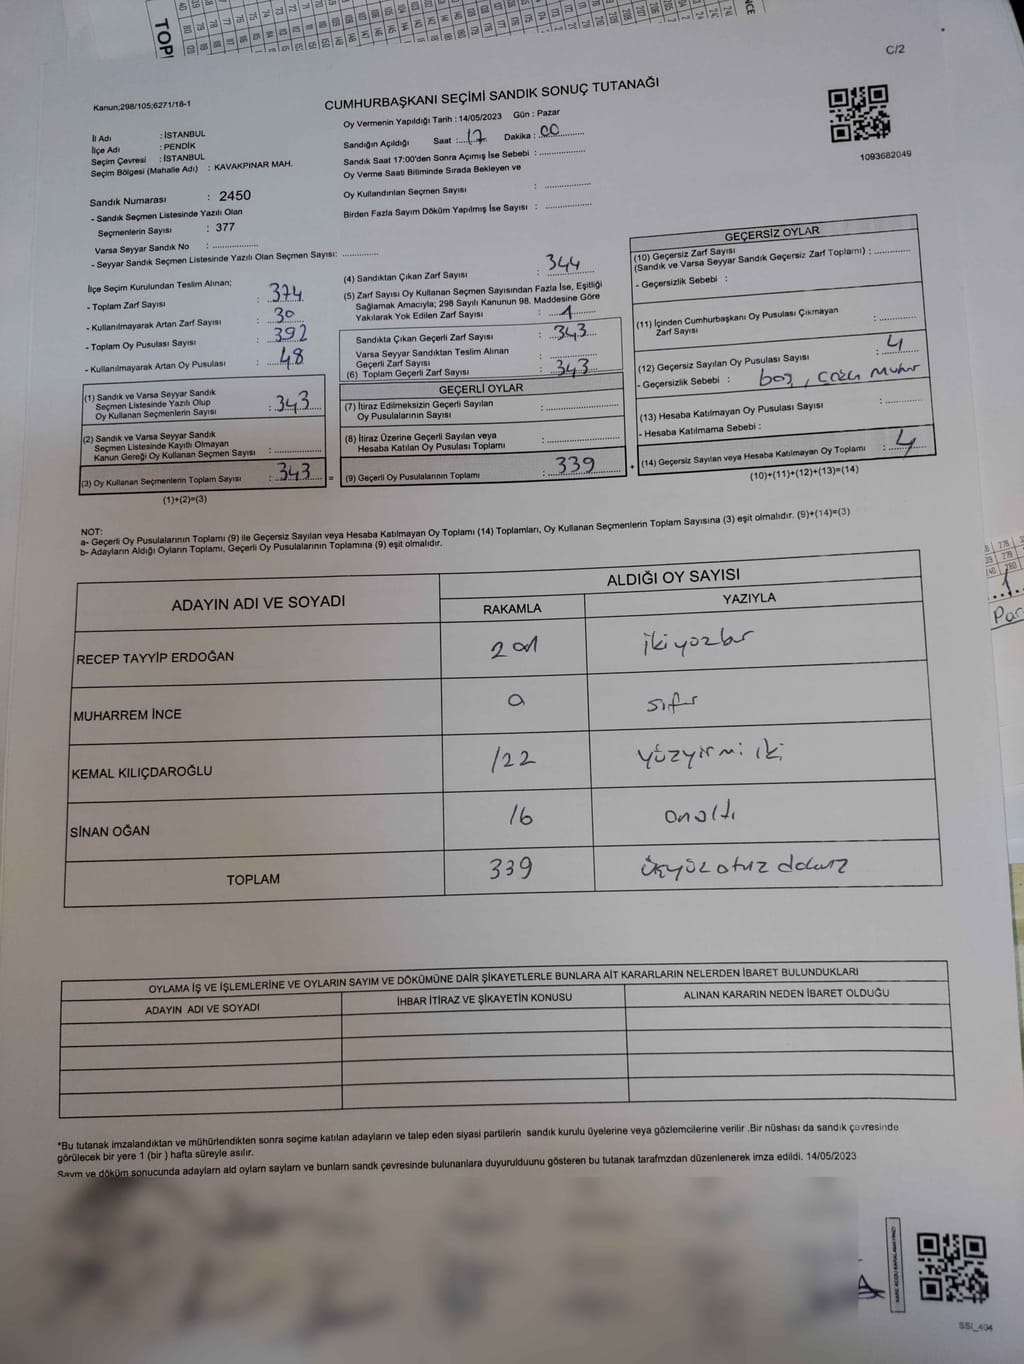 C/2
Kanun;298/105;6271/18-1
CUMHURBAŞKANI SEÇİMİ SANDIK SONUÇ TUTANAĞI
İl Adı : İSTANBUL
İlçe Adı : PENDİK
Seçim Çevresi : İSTANBUL
Seçim Bölgesi (Mahalle Adı) : KAVAKPINAR MAH.
Oy Vermenin Yapıldığı Tarih : 14/05/2023 Gün : Pazar
Sandığın Açıldığı Saat : 17 Dakika : 00
Sandık Saat 17:00'den Sonra Açımış İse Sebebi :
Oy Verme Saati Bitiminde Sırada Bekleyen ve
Oy Kullandırılan Seçmen Sayısı :
Birden Fazla Sayım Döküm Yapılmış İse Sayısı :
1093682049
Sandık Numarası : 2450
- Sandık Seçmen Listesinde Yazılı Olan
Seçmenlerin Sayısı : 377
Varsa Seyyar Sandık No :
- Seyyar Sandık Seçmen Listesinde Yazılı Olan Seçmen Sayısı:
İlçe Seçim Kurulundan Teslim Alınan;
- Toplam Zarf Sayısı : 374
- Kullanılmayarak Artan Zarf Sayısı : 30
- Toplam Oy Pusulası Sayısı : 392
- Kullanılmayarak Artan Oy Pusulası : 48
(1) Sandık ve Varsa Seyyar Sandık
Seçmen Listesinde Yazılı Olup
Oy Kullanan Seçmenlerin Sayısı : 343
(2) Sandık ve Varsa Seyyar Sandık
Seçmen Listesinde Kayıtlı Olmayan
Kanun Gereği Oy Kullanan Seçmen Sayısı :
(3) Oy Kullanan Seçmenlerin Toplam Sayısı : 343 =
(1)+(2)=(3)
(4) Sandıktan Çıkan Zarf Sayısı : 344
(5) Zarf Sayısı Oy Kullanan Seçmen Sayısından Fazla İse, Eşitliği
Sağlamak Amacıyla; 298 Sayılı Kanunun 98. Maddesine Göre
Yakılarak Yok Edilen Zarf Sayısı : 1
Sandıkta Çıkan Geçerli Zarf Sayısı : 343
Varsa Seyyar Sandıktan Teslim Alınan
Geçerli Zarf Sayısı :
(6) Toplam Geçerli Zarf Sayısı : 343
GEÇERLİ OYLAR
(7) İtiraz Edilmeksizin Geçerli Sayılan
Oy Pusulalarının Sayısı :
(8) İtiraz Üzerine Geçerli Sayılan veya
Hesaba Katılan Oy Pusulası Toplamı :
(9) Geçerli Oy Pusulalarının Toplamı : 339 +
GEÇERSİZ OYLAR
(10) Geçersiz Zarf Sayısı
(Sandık ve Varsa Seyyar Sandık Geçersiz Zarf Toplamı) :
- Geçersizlik Sebebi :
(11) İçinden Cumhurbaşkanı Oy Pusulası Çıkmayan
Zarf Sayısı :
(12) Geçersiz Sayılan Oy Pusulası Sayısı : 4
- Geçersizlik Sebebi : boş,
(13) Hesaba Katılmayan Oy Pusulası Sayısı :
- Hesaba Katılmama Sebebi :
(14) Geçersiz Sayılan veya Hesaba Katılmayan Oy Toplamı : 4
(10)+(11)+(12)+(13)=(14)
NOT:
a- Geçerli Oy Pusulalarının Toplamı (9) ile Geçersiz Sayılan veya Hesaba Katılmayan Oy Toplamı (14) Toplamları, Oy Kullanan Seçmenlerin Toplam Sayısına (3) eşit olmalıdır. (9)+(14)=(3)
b- Adayların Aldığı Oyların Toplamı, Geçerli Oy Pusulalarının Toplamına (9) eşit olmalıdır.
ADAYIN ADI VE SOYADI ALDIĞI OY SAYISI
RAKAMLA YAZIYLA
RECEP TAYYİP ERDOĞAN 201 ikiyüzbir
MUHARREM İNCE 0 sıfır
KEMAL KILIÇDAROĞLU 122 yüzyirmi iki
SİNAN OĞAN 16 onaltı
TOPLAM 339 üçyüz otuz dokuz
OYLAMA İŞ VE İŞLEMLERİNE VE OYLARIN SAYIM VE DÖKÜMÜNE DAİR ŞİKAYETLERLE BUNLARA AİT KARARLARIN NELERDEN İBARET BULUNDUKLARI
ADAYIN ADI VE SOYADI İHBAR İTİRAZ VE ŞİKAYETİN KONUSU ALINAN KARARIN NEDEN İBARET OLDUĞU
*Bu tutanak imzalandıktan ve mühürlendikten sonra seçime katılan adayların ve talep eden siyasi partilerin sandık kurulu üyelerine veya gözlemcilerine verilir .Bir nüshası da sandık çevresinde
görülecek bir yere 1 (bir ) hafta süreyle asılır.
Sayım ve döküm sonucunda adayların ald oyların sayların ve bunların sandk çevresinde bulunanlara duyurulduunu gösteren bu tutanak tarafmzdan düzenlenerek imza edildi. 14/05/2023